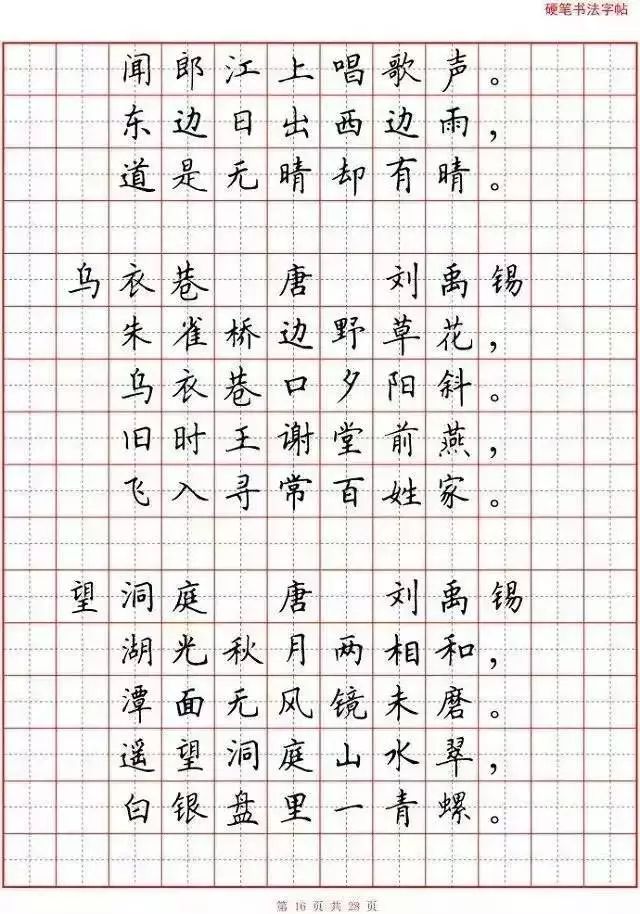 硬笔书法字帖
闻郎江上唱歌声。
东边日出西边雨，
道是无晴却有晴。
乌衣巷 唐 刘禹锡
朱雀桥边野草花，
乌衣巷口夕阳斜。
旧时王谢堂前燕，
飞入寻常百姓家。
望洞庭 唐 刘禹锡
湖光秋月两相和，
潭面无风镜未磨。
遥望洞庭山水翠，
白银盘里一青螺。
第 16 页 共 28 页